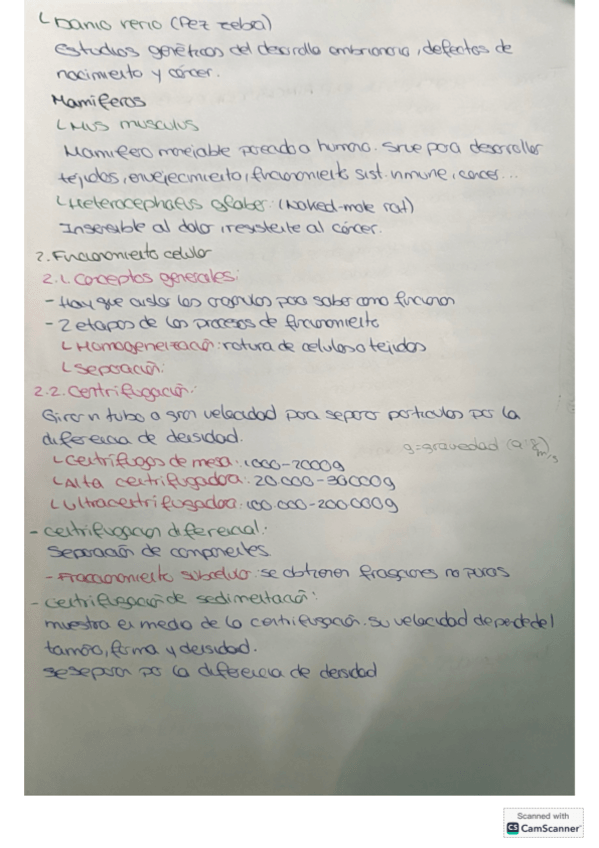 Danio rerio (Pez zebra)
Estudios genéticos del desarrollo embrionario, defectos de
nacimiento y cáncer.
Mamíferos
Mus musculus
Mamífero manejable parecido a humano. Sirve para desarrollar
tejidos, envejecimiento, funcionamiento sist. inmune, cancer...
Heterocephalus glaber: (Naked-mole rat)
Insensible al dolor, resistente al cáncer.
2. Funcionamiento celular
2.1. Conceptos generales:
- Hay que aislar los orgánulos para saber como funcionan
- 2 etapas de los procesos de funcionamiento
Homogeneización: rotura de células o tejidos
Separación:
2.2. Centrifugación:
Girar n tubo a gran velocidad para separar partículas por la
diferencia de densidad.
g=gravedad (9'8 m/s
Centrífugas de mesa: 1000-2000g
Alta centrifugadora: 20.000-30000g
Ultracentrifugadora: 100.000-200.000g
- Centrifugación diferencial:
Separación de componentes
- Fraccionamiento subcelular: se obtienen fracciones no puras
- Centrifugación de sedimentación:
muestra en medio de la centrifugación. su velocidad depende del
tamaño, forma y densidad.
se separan por la diferencia de densidad
Scanned with
CS CamScanner